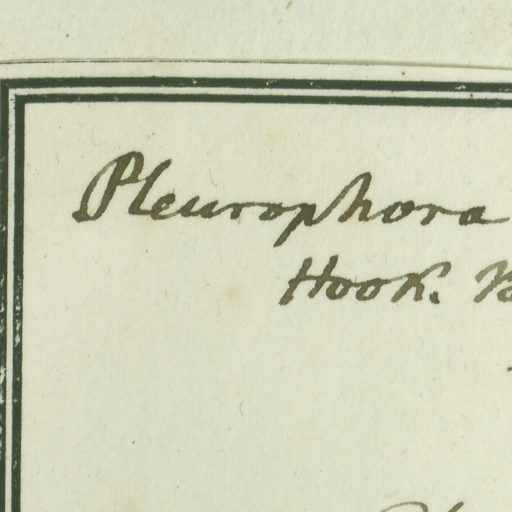 Pleurophora
Hook.